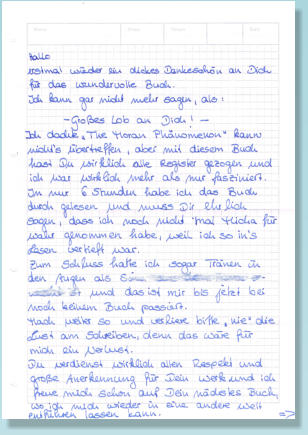 Hallo
erstmal wieder ein dickes Dankeschön an Dich
für das wundervolle Buch.
Ich kann gar nicht mehr sagen, als:
—Großes Lob an Dich! —
Ich dachte „The Moran Phänomenon" kann
nicht's übertreffen, aber mit diesem Buch
hast Du wirklich alle Register gezogen und
ich war wirklich mehr als nur fasziniert.
In nur 6 Stunden habe ich das Buch
durch gelesen und muss Dir ehrlich
sagen, dass ich noch nicht 'mal für
wahr genommen habe, weil ich so in's
Lesen vertieft war.
Zum Schluss hatte ich sogar Tränen in
den Augen als
und das ist mir bis jetzt bei
noch keinem Buch passiert.
Mach weiter so und verliere bitte „nie" die
Lust am Schreiben, denn das wäre für
mich ein Verlust.
Du verdienst wirklich allen Respekt und
große Anerkennung für Dein Werk und ich
freue mich schon auf Dein nächstes Buch,
wo ich mich wieder in eine andere Welt
entführen lassen kann. =>